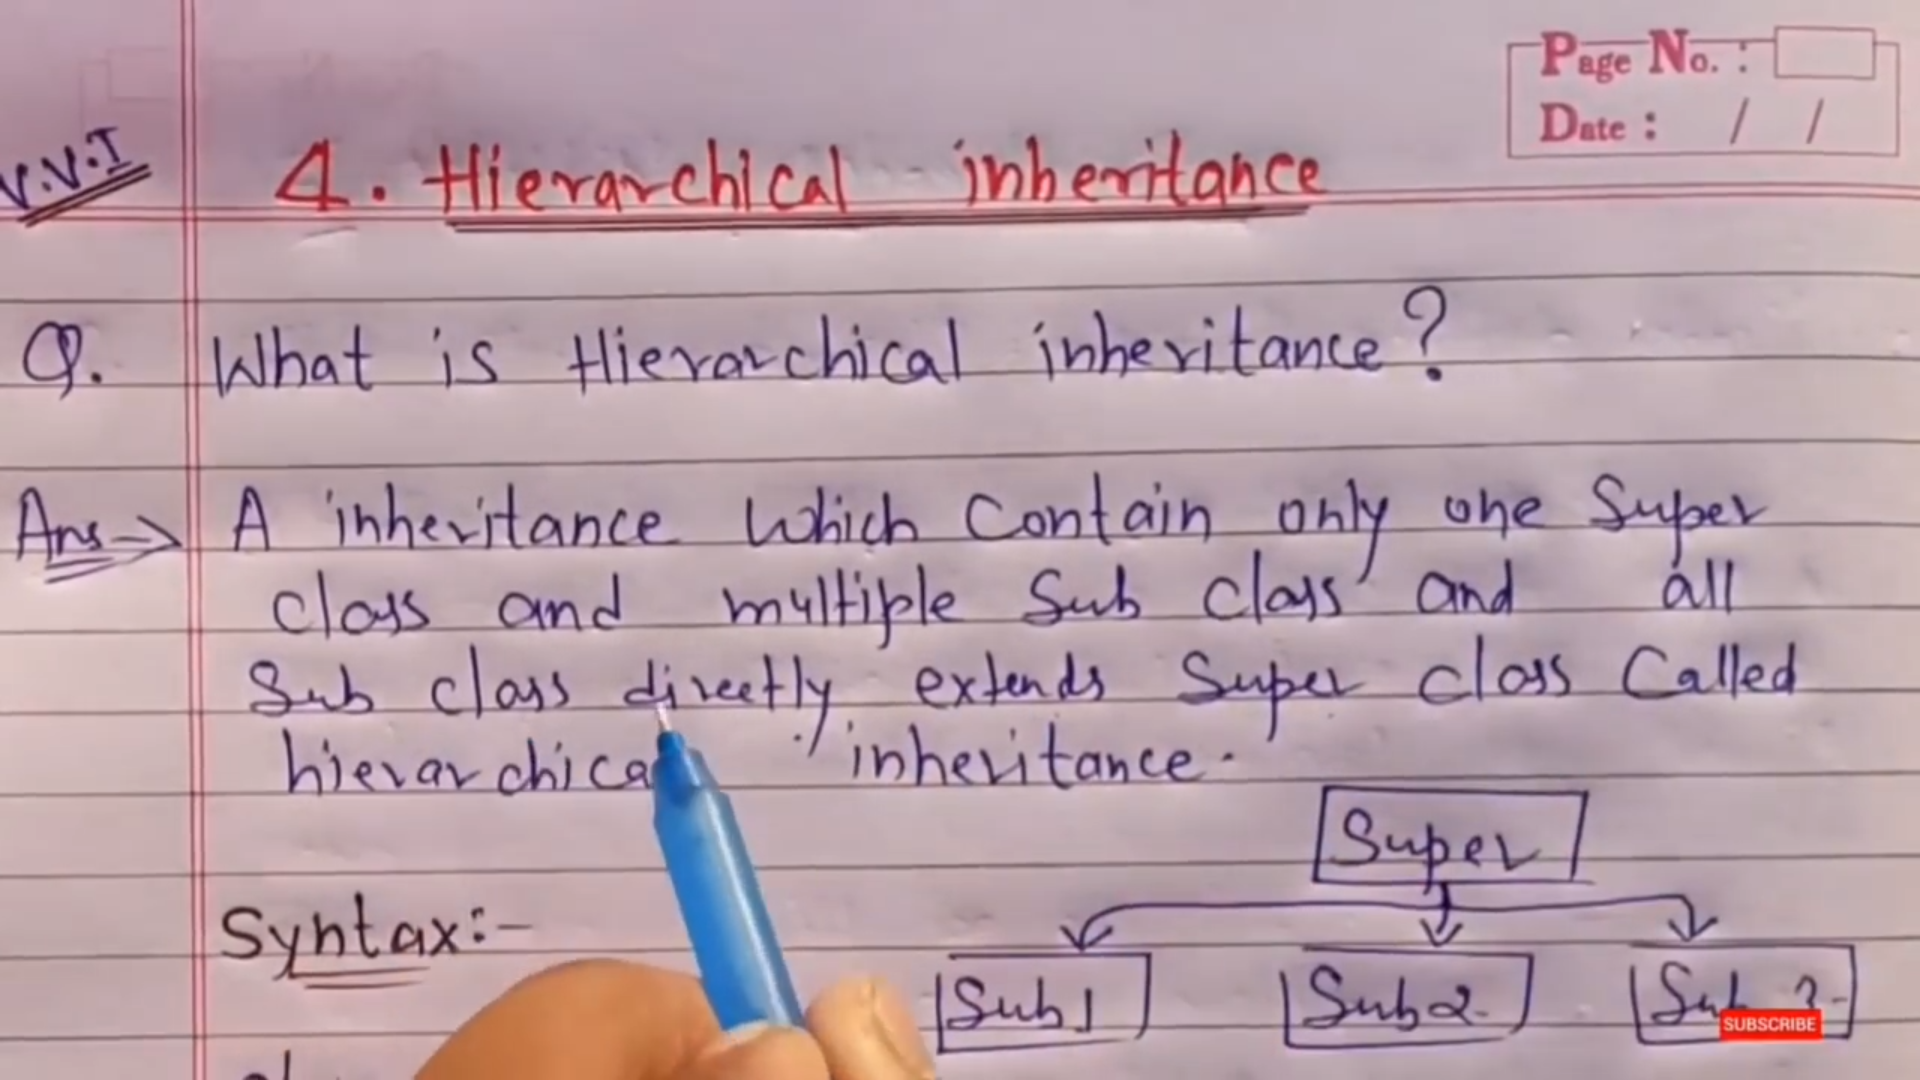 Page No. :
Date : / /
V.V.I
4. Hierarchical inheritance
Q. What is Hierarchical inheritance?
Ans→ A inheritance which contain only one Super
class and multiple Sub class and all
Sub class directly extends Super class Called
hierarchical inheritance.
Super
Syntax:-
Sub1 Sub2
SUBSCRIBE